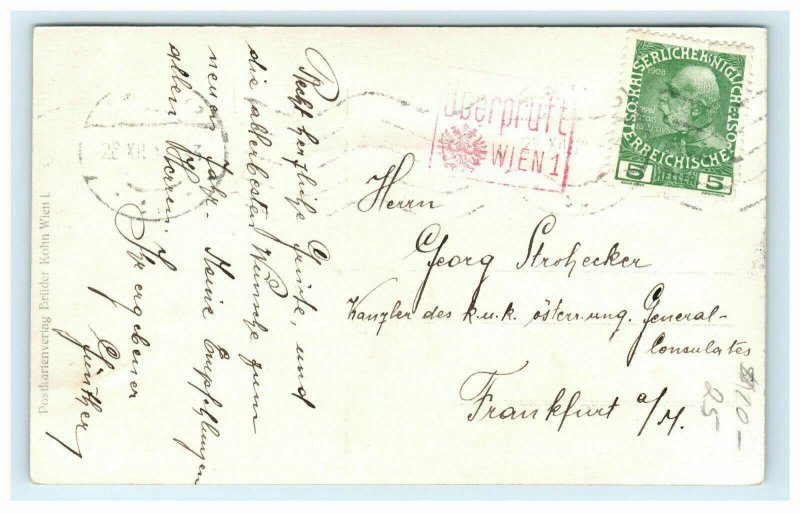 Recht herzliche Grüße, und
die allerbesten Wünsche zum
neuen Jahr. Meine Empfehlungen
allen Herren,
Ihr ergebener
Günther
Postkartenverlag Brüder Kohn Wien I.
28 XII
Überprüft
WIEN 1
KAISERLICHE KÖNIGLICHE
ÖSTERREICHISCHE
1908
5 HELLER 5
Herrn
Georg Strohecker
Kanzler des k.u.k. österr. ung. General-
Consulates
Frankfurt a/M.
$10-
25